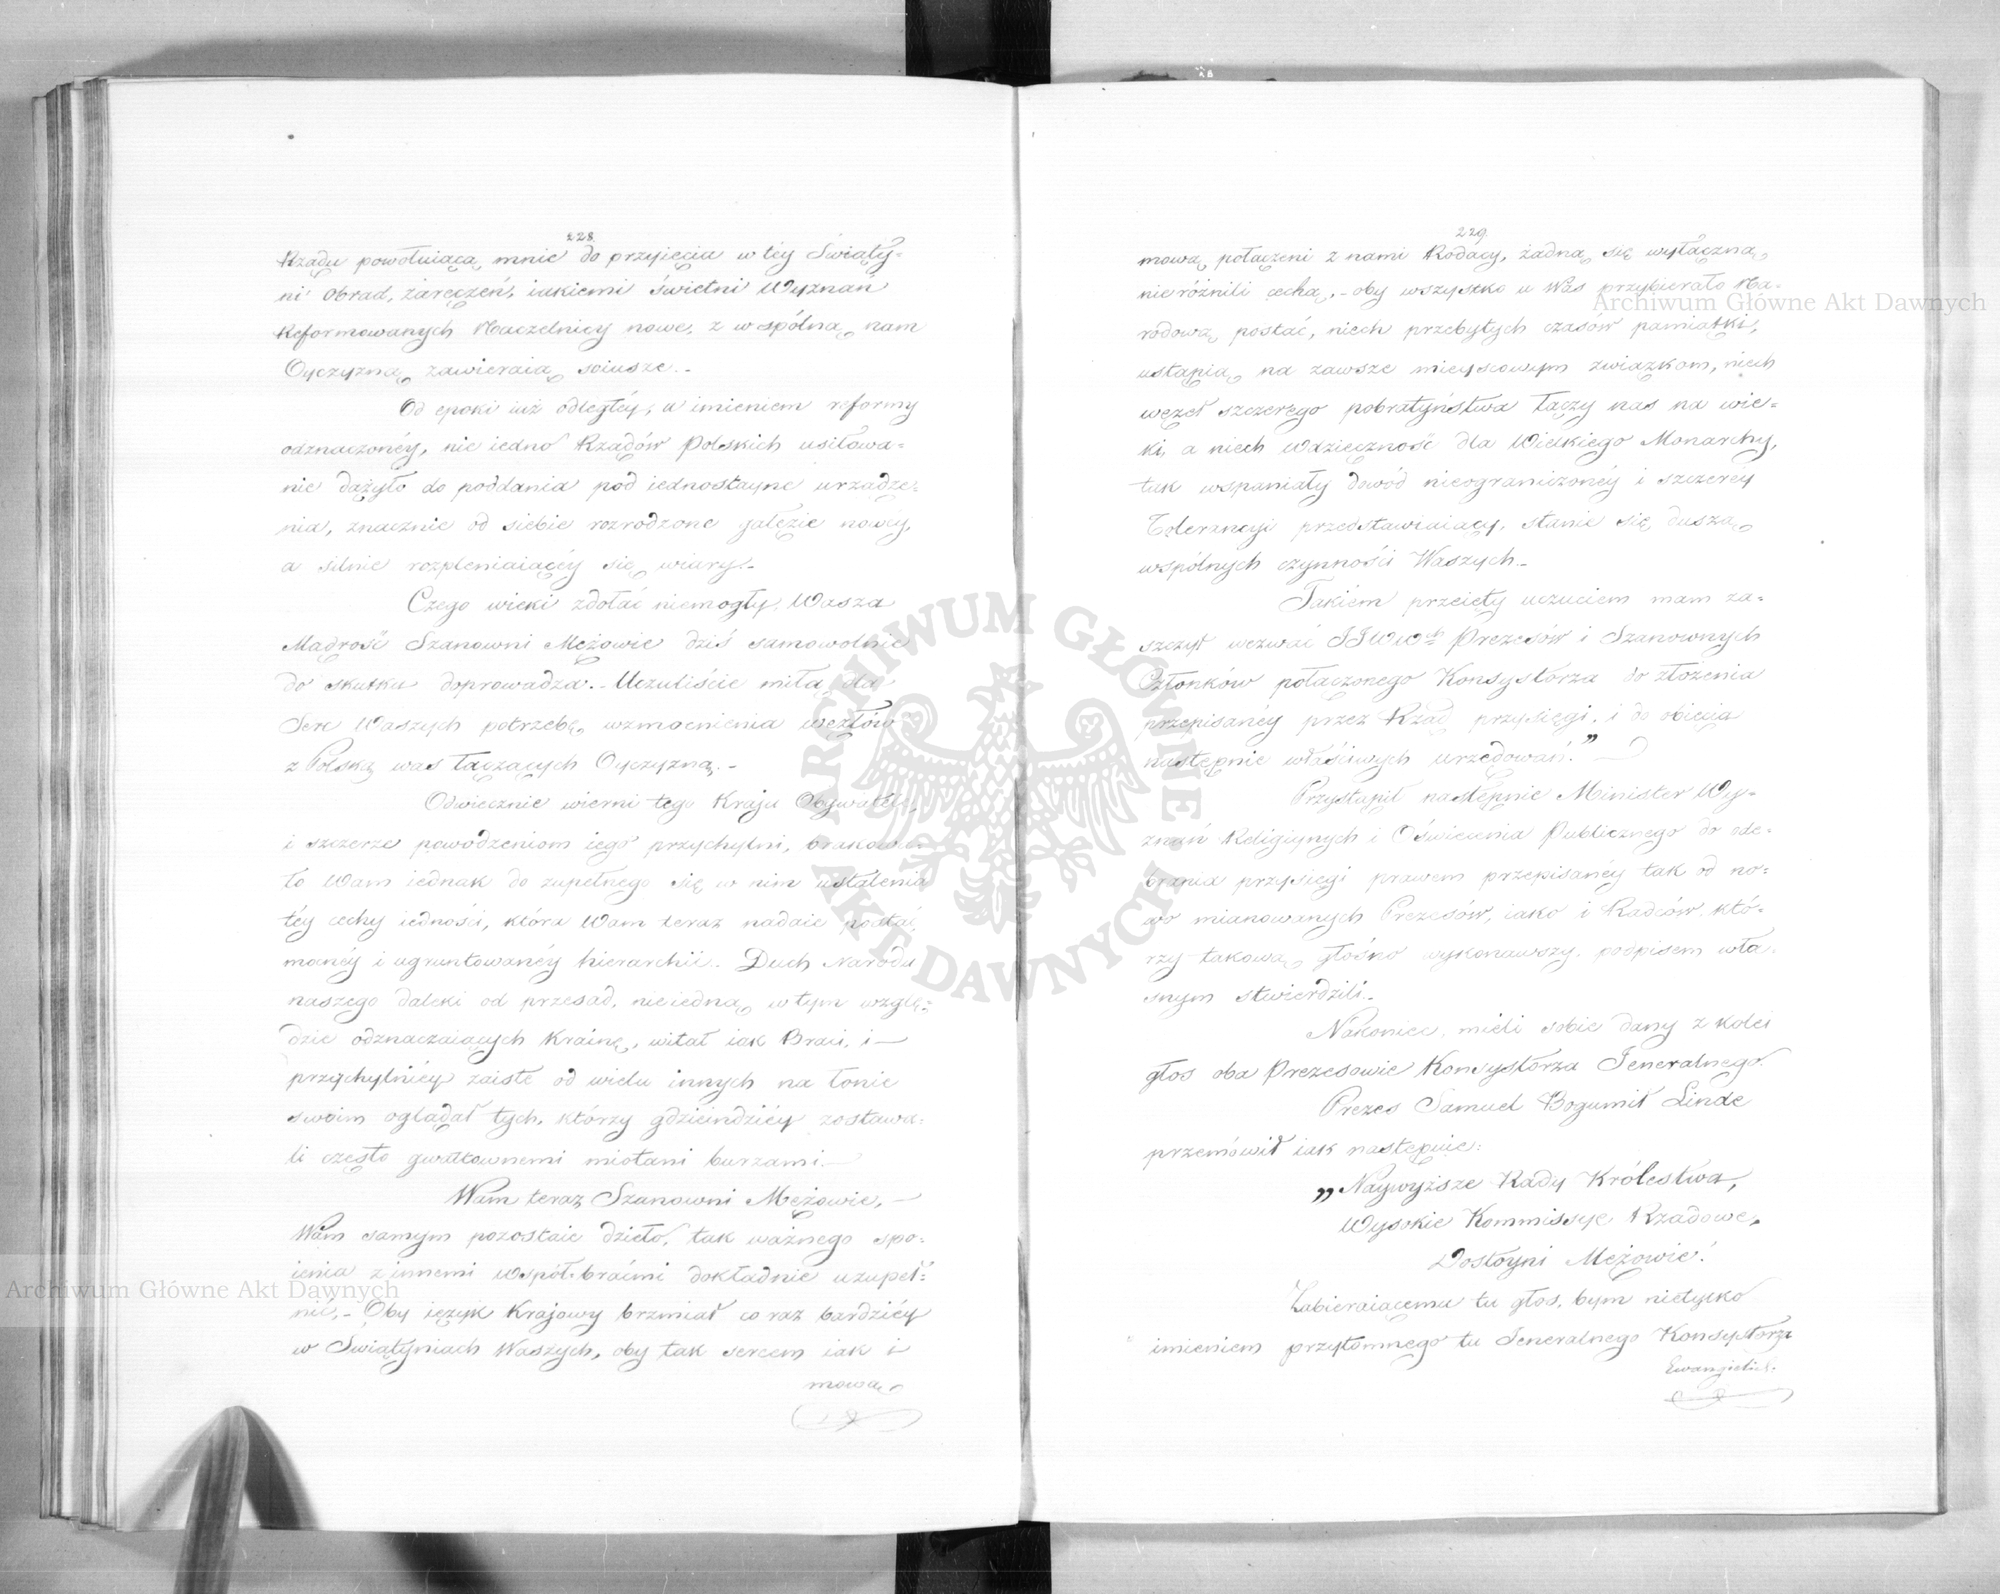 228.
Rządu powołuiącą mnie do przyięcia w téy Świąty-
ni Obrad, zaręczeń, iakiemi świetni Wyznań
Reformowanych Naczelnicy nowe, z wspólną nam
Oyczyzną zawieraią soiusze.-
Od epoki iuż odległéy, a imieniem reformy
odznaczonéy, nie iedno Rządów Polskich usiłowa-
nie dążyło do poddania pod iednostayne urządze-
nia, znacznie od siebie rozrodzone gałęzie nowéy,
a silnie rozpleniaiącéy się wiary.-
Czego wieki zdołać niemogły, Wasza
Mądrość Szanowni Mężowie dziś samowolnie
do skutku doprowadza.- Uczuliście miłą dla
Serc Waszych potrzebę, wzmocnienia węzłów
z Polską was łączących Oyczyzną.-
Odwiecznie wierni tego Kraju Obywatele,
i szczerze powodzeniom iego przychylni, brakowa-
ło Wam iednak do zupełnego się w nim ustalenia
téy cechy iedności, która Wam teraz nadaie postać,
mocnéy i ugruntowanéy hierarchii.- Duch Narodu
naszego daleki od przesąd, nieiedną w tym wzglę-
dzie odznaczaiących Krainę, witał iak Braci, i-
przychylniéy zaiste od wielu innych na łonie
swoim oglądał tych, którzy gdzieindziéy zostawa-
li często gwałtownemi miotani burzami.-
Wam teraz Szanowni Mężowie,-
Wam samym pozostaie dzieło, tak ważnego spo-
ienia z innemi współ-braćmi dokładnie uzupeł-
nić,- Oby ięzyk Krajowy brzmiał co raz bardziéy
w Świątyniach Waszych, oby tak sercem iak i
mową
229.
mową połączeni z nami Rodacy, żadną się wyłączną
nie różnili cechą,- oby wszystko u Was przybierało Na-
rodową postać, niech przebyłych czasów pamiątki,
ustąpią na zawsze mieyscowym związkom, niech
węzeł szczerego pobratyństwa łączy nas na wie-
ki, a niech wdzięczność dla Wielkiego Monarchy,
tak wspaniały dowód nieograniczonéy i szczeréy
Tolerancyi przedstawiaiący, stanie się duszą
wspólnych czynności Waszych.-
Takiem przeięty uczuciem mam za-
szczyt wezwać JJWWch Prezesów i Szanownych
Członków połączonego Konsystorza do złożenia
przepisanéy przez Rząd przysięgi, i do obięcia
następnie właściwych urzędowań."
Przystąpił następnie Minister Wy-
znań Religiynych i Oświecenia Publicznego do ode-
brania przysięgi prawem przepisanéy tak od no-
wo mianowanych Prezesów, iako i Radców, któ-
rzy takową głośno wykonawszy, podpisem wła-
snym stwierdzili.-
Nakoniec, mieli sobie dany z kolei
głos oba Prezesowie Konsystorza Jeneralnego.
Prezes Samuel Bogumił Linde
przemówił iak następuie:
„Naywyższe Rady Królestwa,
Wysokie Kommissye Rządowe,
Dostoyni Mężowie!
Zabieraiącemu tu głos, bym nietylko
imieniem przytomnego tu Jeneralnego Konsystorza
Ewangielick:
Archiwum Główne Akt Dawnych
Archiwum Główne Akt Dawnych
ARCHIWUM GŁÓWNE AKT DAWNYCH